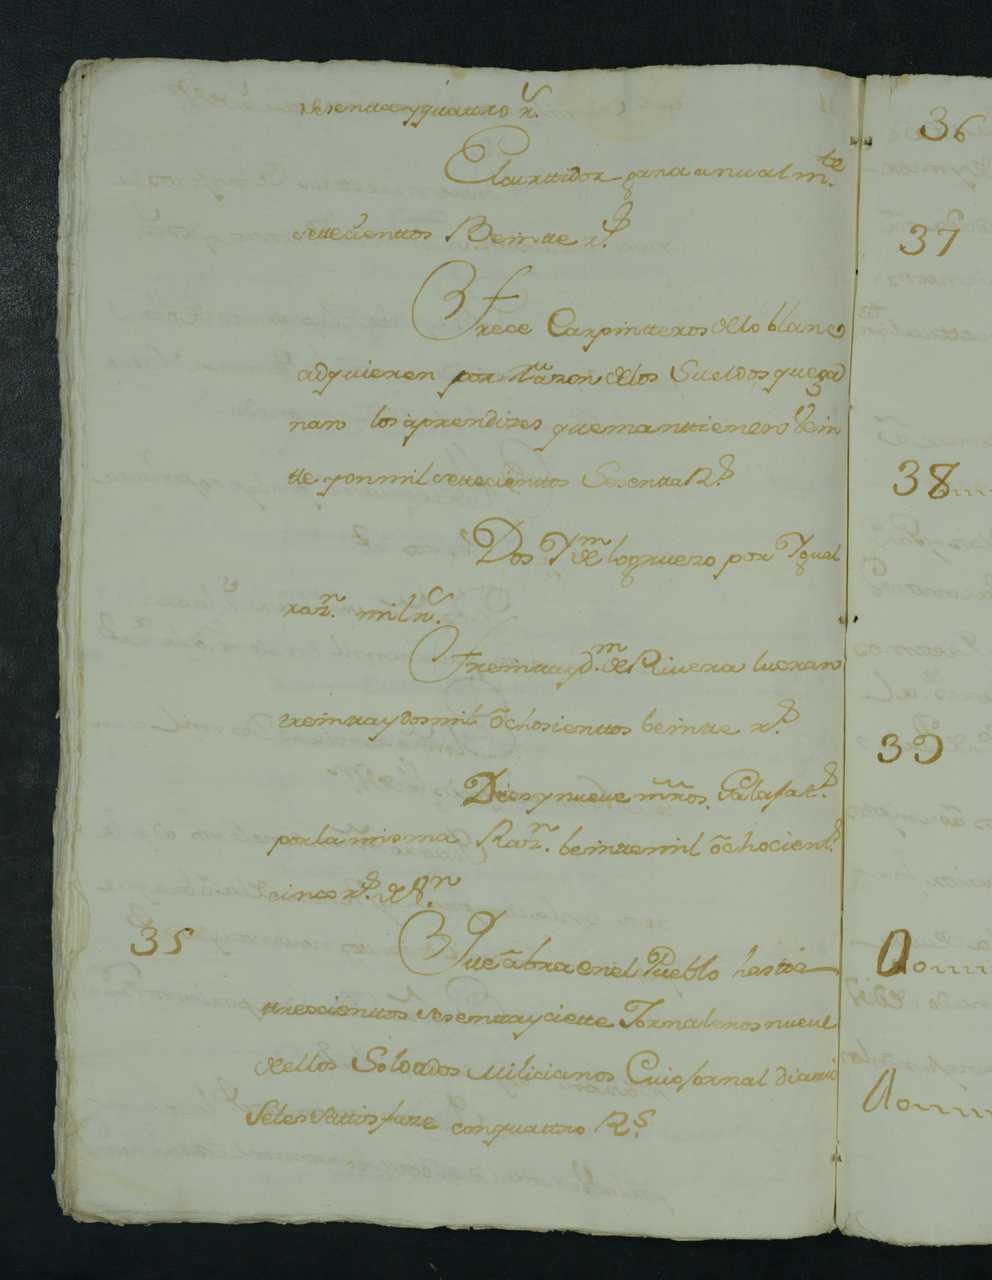 sesentta y quattro rs.
El curttidor gana anualmte
settecienttos Beintte rs.
Trece Carpintteros de lo blanco
adquieren por razon de los Sueldos que ga
nan los aprendizes que manttienen Vein
tte y on mil settecienttos Sesentta Rs.
Dos Ym de logruero por Ygual
razn. mil rs.
Treintta y d.m de Rivera lucran
treintta y dos mil ochosienttos beintte rs.
Dies y nueve mños. Calafats.
por la misma Razn. beintte mil ochocients.
cinco rs. de vn.
35 Que abra en el Pueblo hasta
ttrescienttos sesentta y ciette Jornaleros nueve
de llos Soldados Milicianos Cuio Jornal diario
se les sattisfaze con quattro Rs.
36
37
38
39